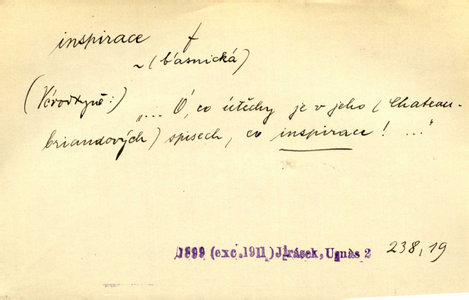 inspirace f
~ (básnická)
(Vévodkyně:) „... Ó, co útěchy je v jeho (Chateau-
briandových) spisech, co inspirace! ..."
1899 (exc. 1911) Jirásek, U nás 2 238,19